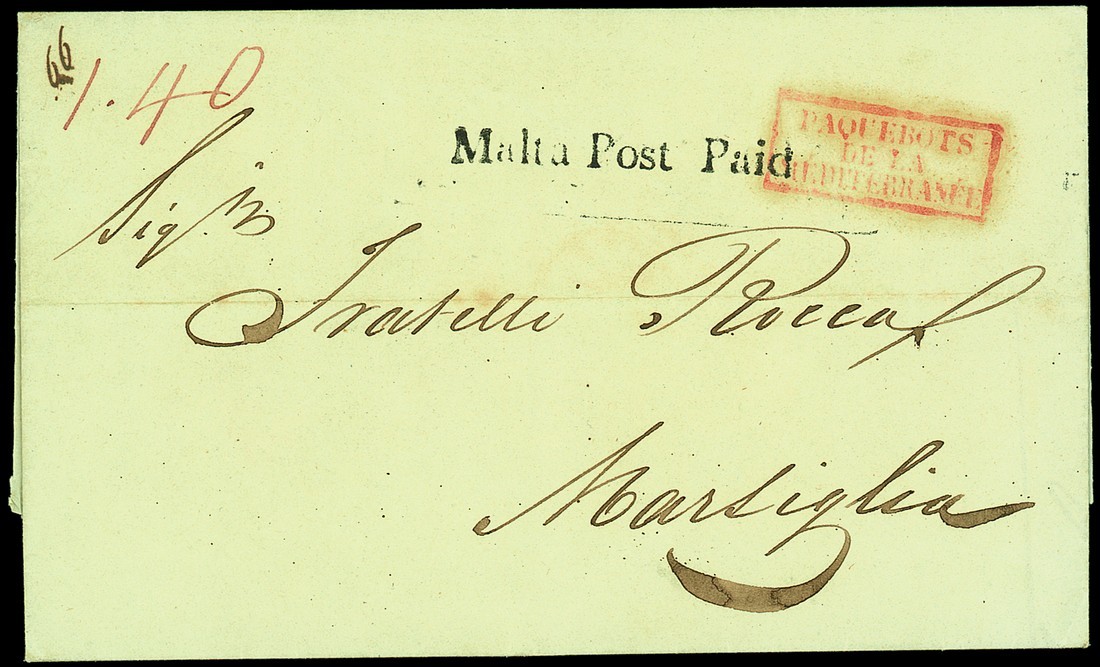 66
1.40
Malta Post Paid
PAQUEBOTS
DE LA
MÉDITERRANÉE
Sig.ri
Fratelli Rocca
Marsiglia